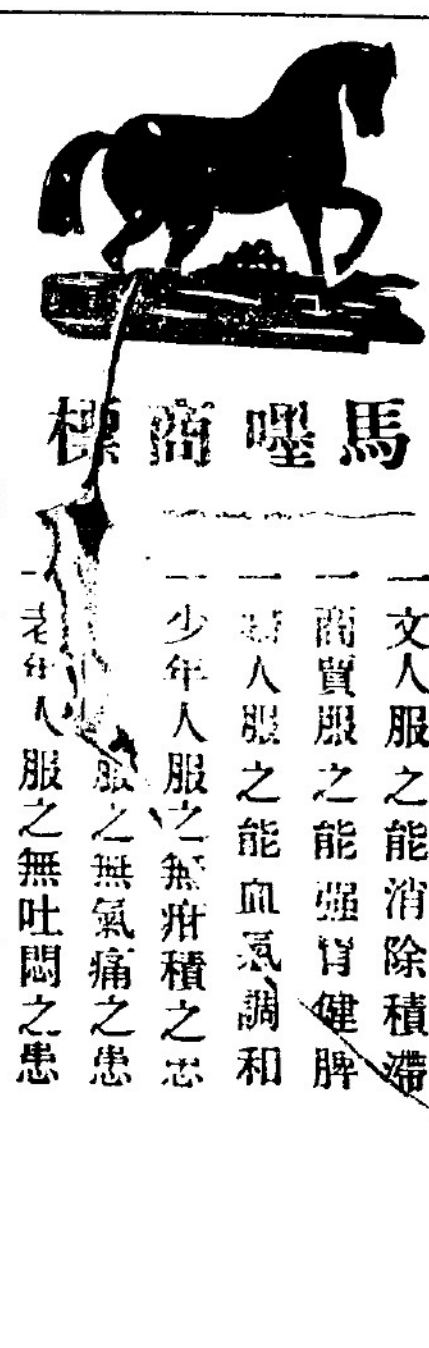 馬嘜商標
一文人服之能消除積滯
一商賈服之能强胃健脾
一婦人服之能血氣調和
一少年人服之無疳積之患
服之無氣痛之患
一老年人服之無吐悶之患